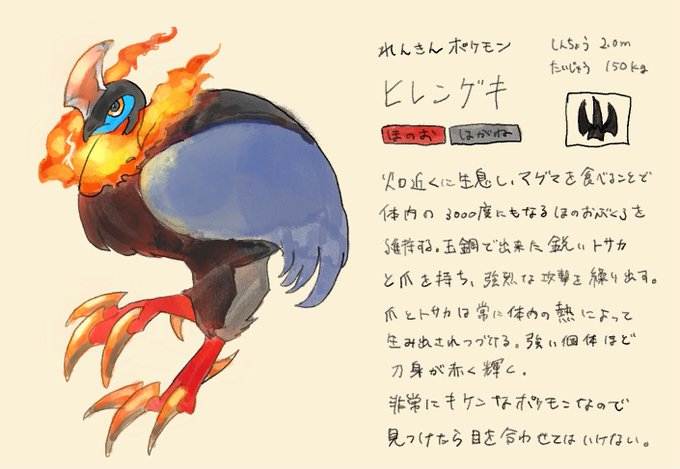 れんきんポケモン
しんちょう 2.0m
たいじゅう 150kg
ヒレンゲキ
ほのお はがね
火口近くに生息し、マグマを食べることで
体内の3000度にもなるほのおぶくろを
維持する。玉鋼で出来た鋭いトサカ
と爪を持ち、強烈な攻撃を繰り出す。
爪とトサカは常に体内の熱によって
生み出されつづける。強い個体ほど
刀身が赤く輝く。
非常にキケンなポケモンなので
見つけたら目を合わせてはいけない。